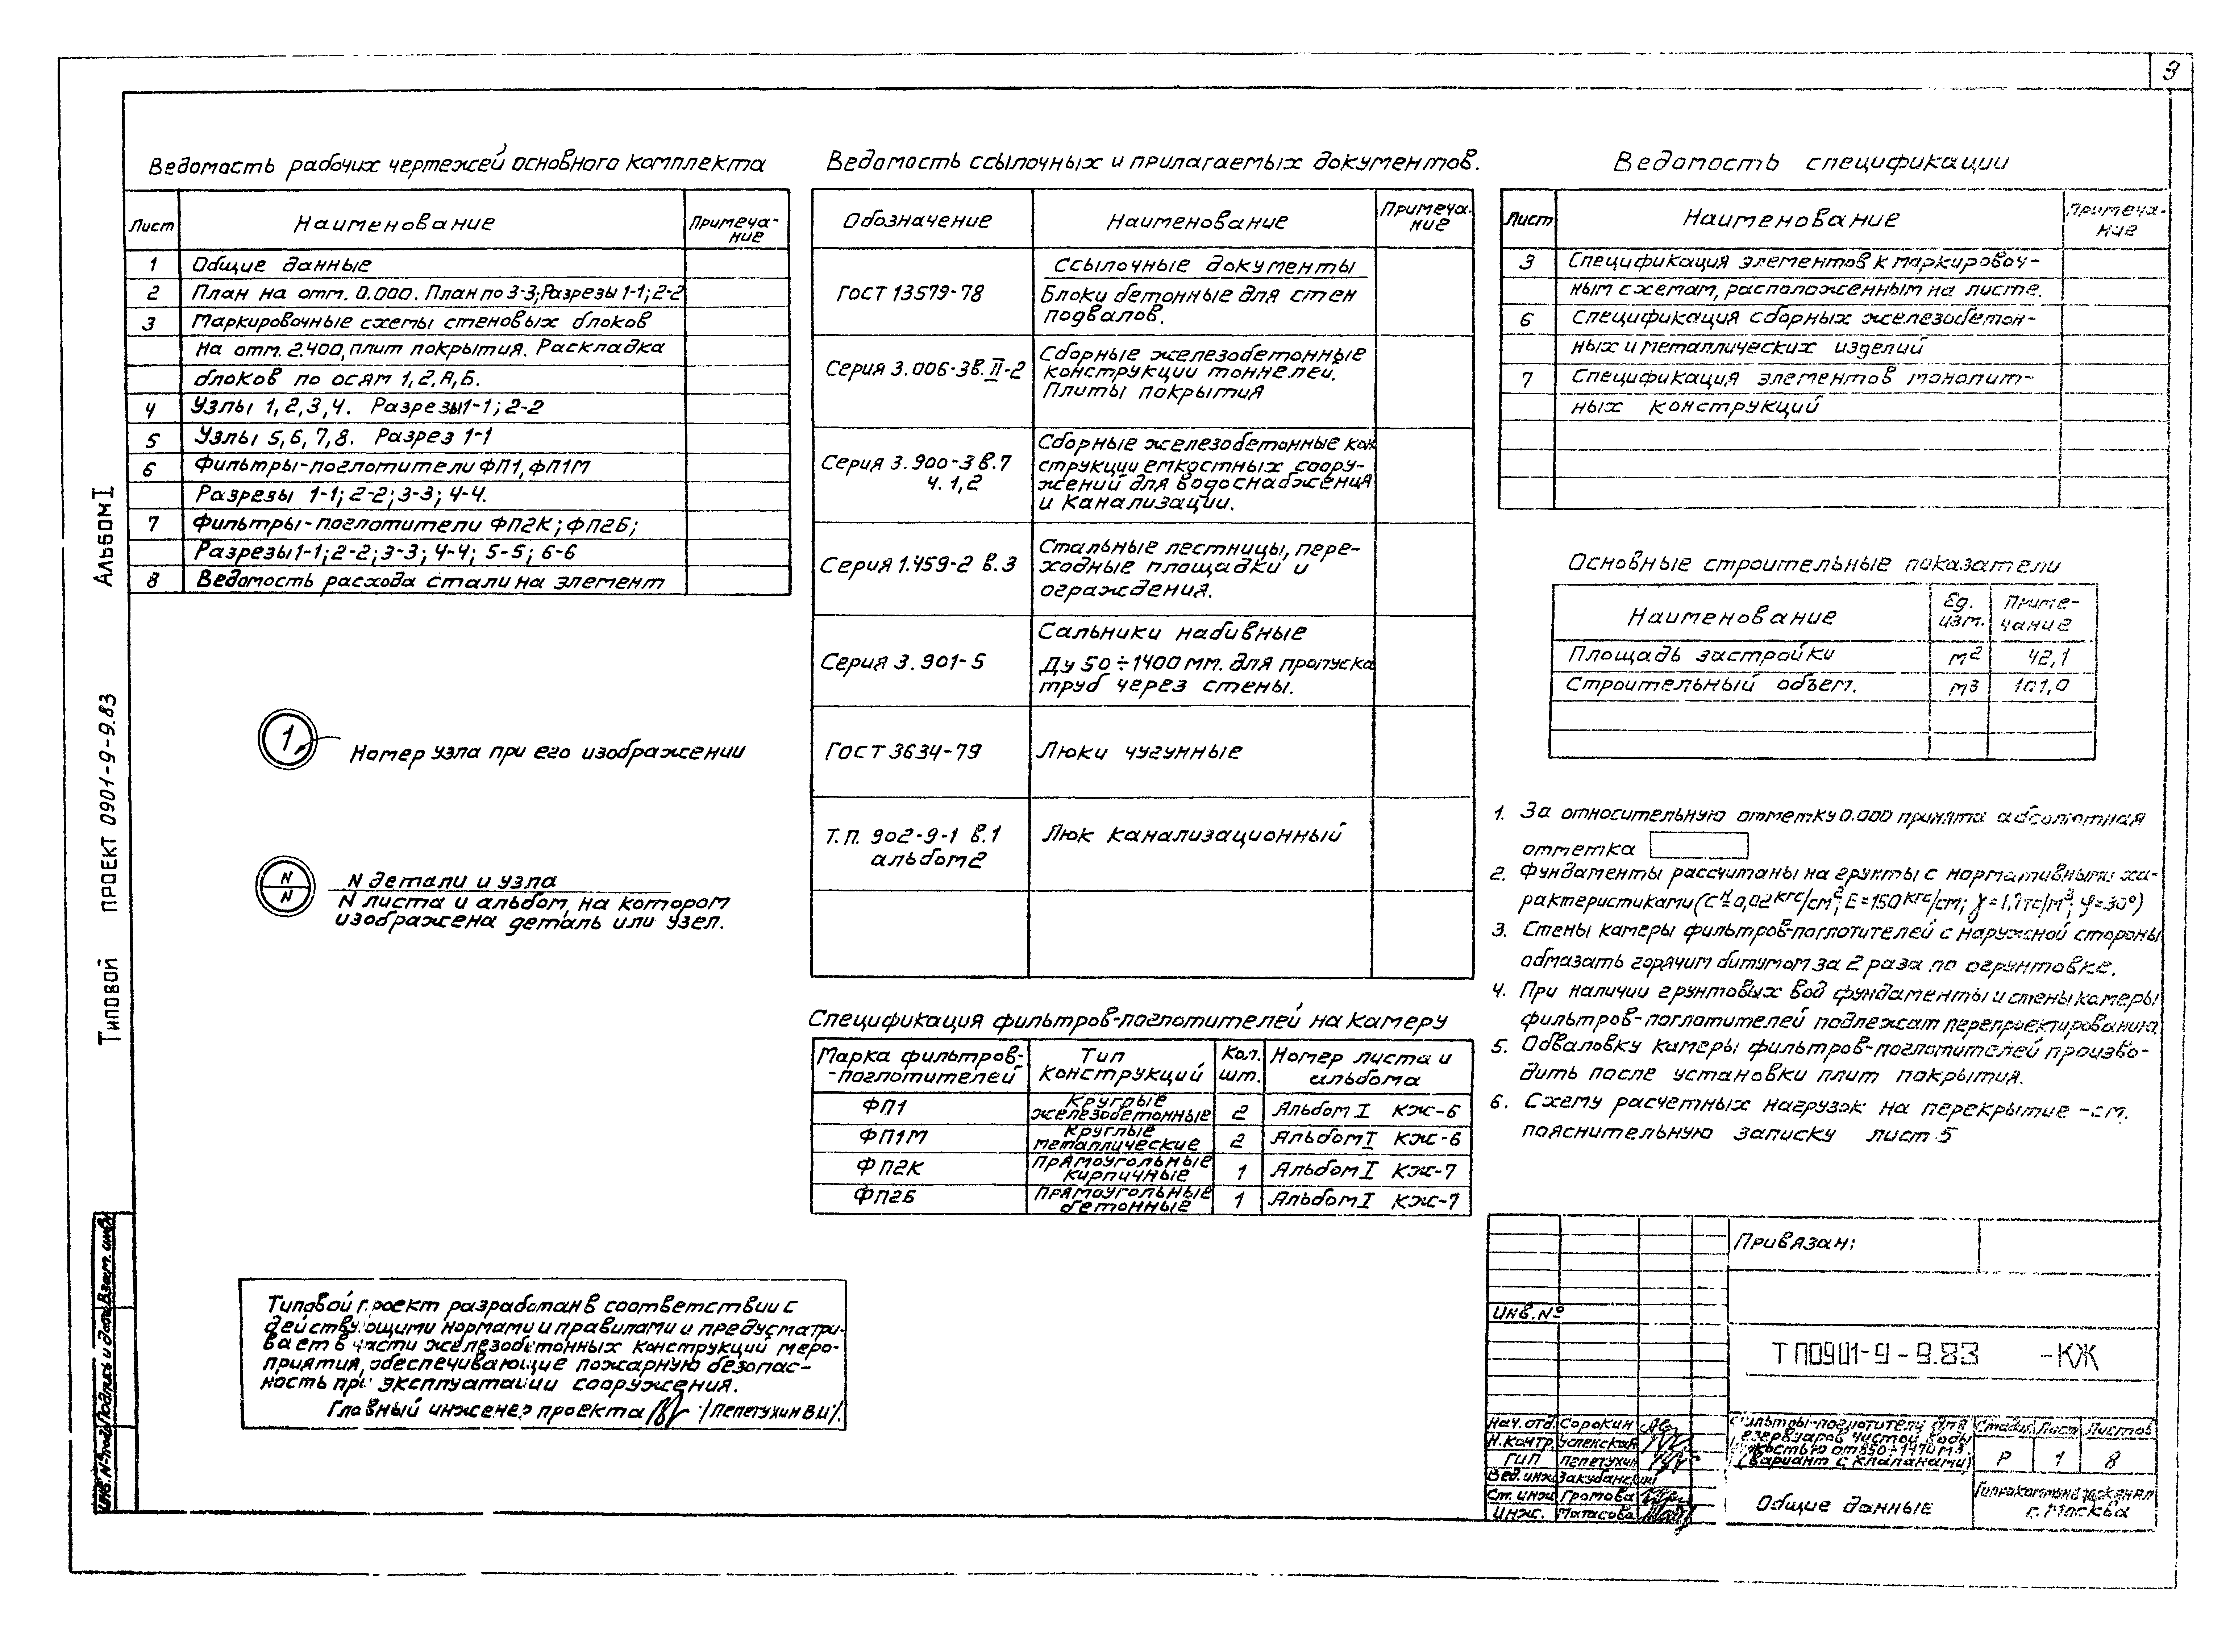 3
Ведомость рабочих чертежей основного комплекта
Лист Наименование Примеча-
ние
1 Общие данные
2 План на отм. 0.000. План по 3-3; Разрезы 1-1; 2-2
3 Маркировочные схемы стеновых блоков
на отм. 2.400, плит покрытия. Раскладка
блоков по осям 1, 2, А, Б.
4 Узлы 1, 2, 3, 4. Разрезы 1-1; 2-2
5 Узлы 5, 6, 7, 8. Разрез 1-1
6 Фильтры-поглотители ФП1, ФП1М
Разрезы 1-1; 2-2; 3-3; 4-4.
7 Фильтры-поглотители ФП2К; ФП2Б;
Разрезы 1-1; 2-2; 3-3; 4-4; 5-5; 6-6
8 Ведомость расхода стали на элемент
1 Номер узла при его изображении
N
N
N детали и узла
N листа и альбом, на котором
изображена деталь или узел.
Типовой проект разработан в соответствии с
действующими нормами и правилами и предусматри-
вает в части железобетонных конструкций меро-
приятия, обеспечивающие пожарную безопас-
ность при эксплуатации сооружения.
Главный инженер проекта /Пепетухин В.И/.
Ведомость ссылочных и прилагаемых документов.
Обозначение Наименование Примеча-
ние
Ссылочные документы
ГОСТ 13579-78 Блоки бетонные для стен
подвалов.
Серия 3.006-3 в. II-2 Сборные железобетонные
конструкции тоннелей.
Плиты покрытия
Серия 3.900-3 в.7
ч. 1,2
Сборные железобетонные кон
струкции емкостных соору-
жений для водоснабжения
и канализации.
Серия 1.459-2 в.3 Стальные лестницы, пере-
ходные площадки и
ограждения.
Серия 3.901-5 Сальники набивные
Ду 50÷1400 мм. для пропуска
труб через стены.
ГОСТ 3634-79 Люки чугунные
Т.П. 902-9-1 в.1
альбом 2
Люк канализационный
Спецификация фильтров-поглотителей на камеру
Марка фильтров-
-поглотителей
Тип
конструкций
Кол.
шт.
Номер листа и
альбома
ФП1 Круглые
железобетонные 2 Альбом I КЖ-6
ФП1М Круглые
металлические 2 Альбом I КЖ-6
ФП2К Прямоугольные
кирпичные 1 Альбом I КЖ-7
ФП2Б Прямоугольные
бетонные 1 Альбом I КЖ-7
Ведомость спецификации
Лист Наименование Примеча-
ние
3 Спецификация элементов к маркировоч-
ным схемам, расположенным на листе.
6 Спецификация сборных железобетон-
ных и металлических изделий
7 Спецификация элементов монолит-
ных конструкций
Основные строительные показатели
Наименование Ед.
изм. Приме-
чание
Площадь застройки м2 42,1
Строительный объем. м3 101,0
1. За относительную отметку 0.000 принята абсолютная
отметка
2. Фундаменты рассчитаны на грунты с нормативными ха-
рактеристиками (Сн=0,02 кгс/см2; Е=150 кгс/см; γ=1,7тс/м3; φ=30°)
3. Стены камеры фильтров-поглотителей с наружной стороны
обмазать горячим битумом за 2 раза по огрунтовке.
4. При наличии грунтовых вод фундаменты и стены камеры
фильтров-поглотителей подлежат перепроектированию
5. Обваловку камеры фильтров-поглотителей произво-
дить после установки плит покрытия.
6. Схему расчетных нагрузок на перекрытие -см.
пояснительную записку лист 5
Привязан:
Инв. №
ТП0901-9-9.83 -КЖ
Нач. отд. Сорокин
Н. контр. Успенская
ГИП Пепетухин
Вед. инж Закубанский
Ст. инж Громова
Инж. Матасова
Фильтры-поглотители для
резервуаров чистой воды
(вариант с клапанами)
Стадия Лист Листов
Р 1 8
Общие данные
г. Москва
Альбом I
Типовой проект 0901-9-9.83
Инв. № подл. Подпись и дата Взам. инв. №